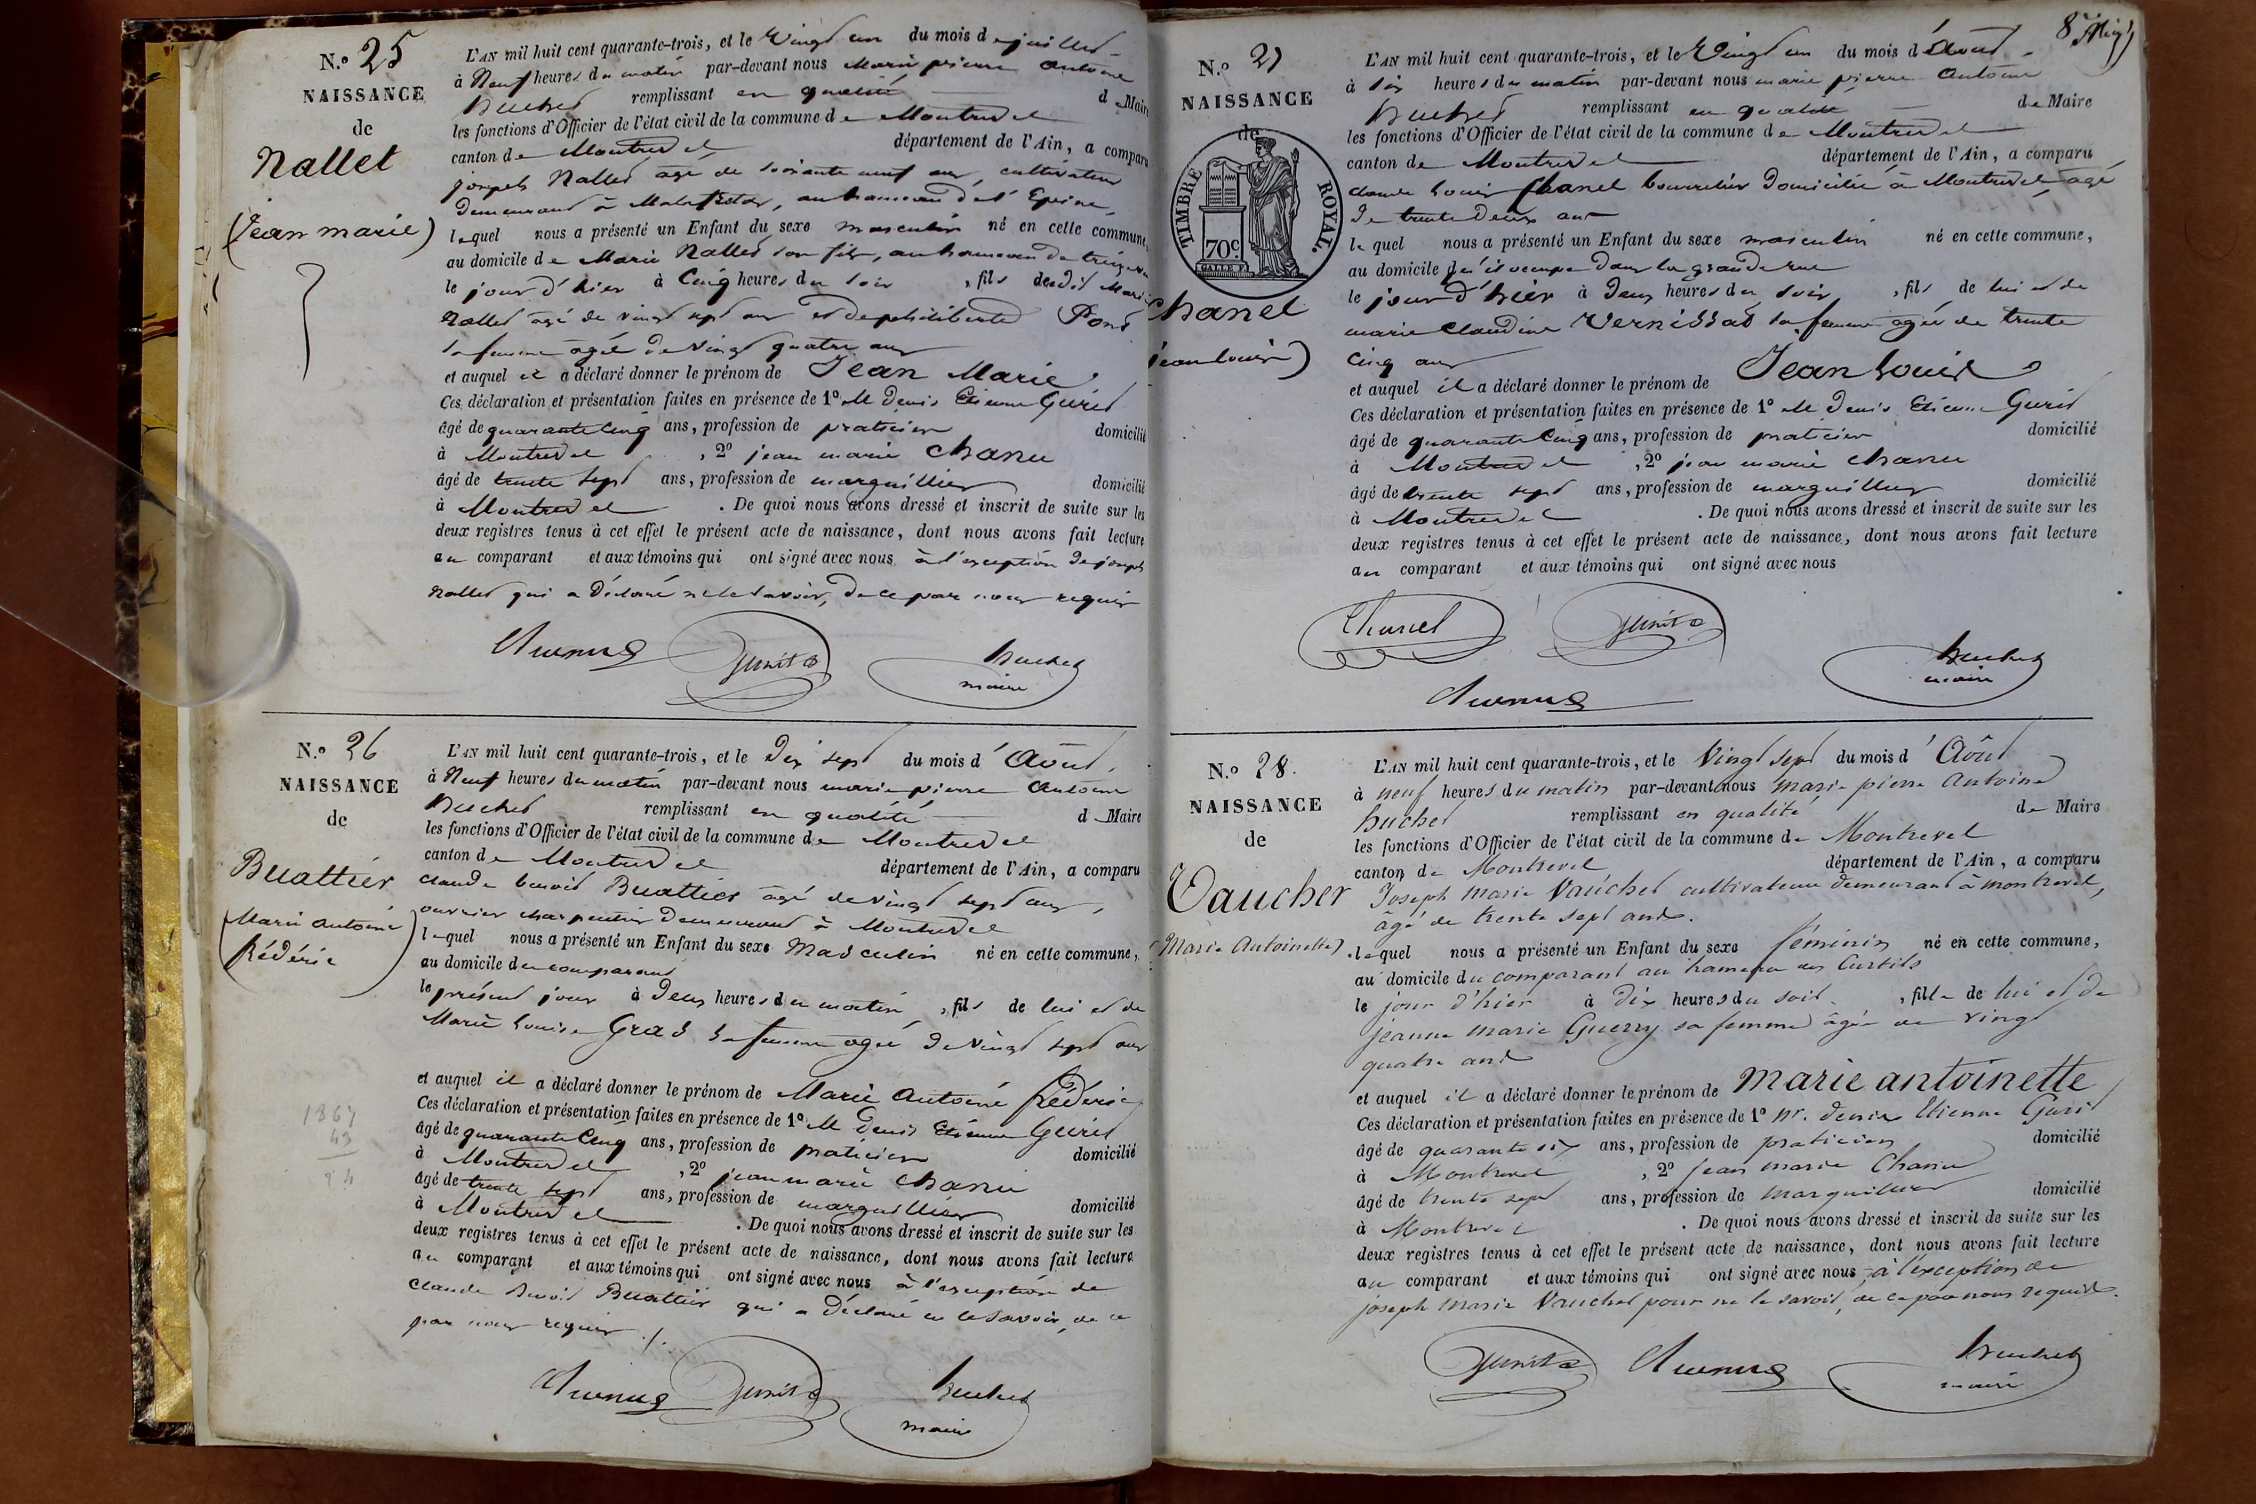 N.º 25
NAISSANCE
de
Nallet
(jean marie)
L'AN mil huit cent quarante-trois, et le Vingt un du mois de juillet
à Neuf heures du matin par-devant nous Marie pierre antoine
huchet remplissant en qualité de Maire
les fonctions d'Officier de l'état civil de la commune de Montrevel
canton de Montrevel département de l'Ain, a comparu
joseph Nallet âgé de soixante neuf ans, cultivateur
demeurant à Malafretaz, au hameau de l'Epine,
lequel nous a présenté un Enfant du sexe masculin né en cette commune,
au domicile de Marie Nallet son fils, au hameau de
le jour d'hier à Cinq heures du soir, fils dudit Marie
Nallet âgé de vingt sept ans et de philiberte Pont
sa femme âgée de vingt quatre ans
et auquel il a déclaré donner le prénom de Jean Marie
Ces déclaration et présentation faites en présence de 1º M Denis Etienne Guris
âgé de quarante Cinq ans, profession de praticien domicilié
à Montrevel, 2º jean marie Chanu
âgé de trente sept ans, profession de marguillier domicilié
à Montrevel. De quoi nous avons dressé et inscrit de suite sur les
deux registres tenus à cet effet le présent acte de naissance, dont nous avons fait lecture
au comparant et aux témoins qui ont signé avec nous à l'exception de joseph
Nallet qui a déclaré ne le savoir, de ce par nous requis
huchet
maire
N.º 26
NAISSANCE
de
Buattier
(Marie antoine
frédéric)
1867
43
24
L'AN mil huit cent quarante-trois, et le dix sept du mois d'Août,
à Neuf heures du matin par-devant nous marie pierre antoine
huchet remplissant en qualité de Maire
les fonctions d'Officier de l'état civil de la commune de Montrevel
canton de Montrevel département de l'Ain, a comparu
claude benoit Buattier âgé de vingt sept ans,
ouvrier charpentier demeurant à Montrevel
lequel nous a présenté un Enfant du sexe Masculin né en cette commune,
au domicile du comparant
le présent jour à deux heures du matin, fils de lui et de
Marie Louise Gras sa femme âgée de vingt sept ans
et auquel il a déclaré donner le prénom de Marie antoine frédéric
Ces déclaration et présentation faites en présence de 1º M Denis Etienne Guris
âgé de quarante Cinq ans, profession de praticien domicilié
à Montrevel, 2º jean marie Chanu
âgé de trente sept ans, profession de marguillier domicilié
à Montrevel. De quoi nous avons dressé et inscrit de suite sur les
deux registres tenus à cet effet le présent acte de naissance, dont nous avons fait lecture
au comparant et aux témoins qui ont signé avec nous à l'exception de
claude benoit Buattier qui a déclaré ne le savoir, de ce
par nous requis
huchet
maire
N.º 27
NAISSANCE
de
TIMBRE ROYAL
70c.
Chanel
(jean louis)
L'AN mil huit cent quarante-trois, et le Vingt un du mois d'Août
à six heures du matin par-devant nous marie pierre antoine
huchet remplissant en qualité de Maire
les fonctions d'Officier de l'état civil de la commune de Montrevel
canton de Montrevel département de l'Ain, a comparu
claude louis Chanel bourrelier domicilié à Montrevel âgé
de trente deux ans
lequel nous a présenté un Enfant du sexe masculin né en cette commune,
au domicile qu'il occupe dans la grande rue
le jour d'hier à deux heures du soir, fils de lui et de
marie Claudine Vernissat sa femme âgée de trente
Cinq ans
et auquel il a déclaré donner le prénom de Jean Louis
Ces déclaration et présentation faites en présence de 1º M Denis Etienne Guris
âgé de quarante Cinq ans, profession de praticien domicilié
à Montrevel, 2º jean marie Chanu
âgé de trente sept ans, profession de marguillier domicilié
à Montrevel. De quoi nous avons dressé et inscrit de suite sur les
deux registres tenus à cet effet le présent acte de naissance, dont nous avons fait lecture
au comparant et aux témoins qui ont signé avec nous
Chanel
huchet
maire
N.º 28.
NAISSANCE
de
Vaucher
(Marie Antoinette)
L'AN mil huit cent quarante-trois, et le Vingt sept du mois d'Août
à neuf heures du matin par-devant nous marie pierre Antoine
huchet remplissant en qualité de Maire
les fonctions d'Officier de l'état civil de la commune de Montrevel
canton de Montrevel département de l'Ain, a comparu
Joseph Marie Vaucher cultivateur demeurant à montrevel,
âgé de trente sept ans.
lequel nous a présenté un Enfant du sexe féminin né en cette commune,
au domicile du comparant au hameau des Curtils
le jour d'hier à dix heures du soir, fille de lui et de
jeanne Marie Guerry sa femme âgée de vingt
quatre ans
et auquel il a déclaré donner le prénom de Marie antoinette
Ces déclaration et présentation faites en présence de 1º Mr. denis Etienne Guris
âgé de quarante six ans, profession de praticien domicilié
à Montrevel, 2º jean marie Chanu
âgé de trente sept ans, profession de marguillier domicilié
à Montrevel. De quoi nous avons dressé et inscrit de suite sur les
deux registres tenus à cet effet le présent acte de naissance, dont nous avons fait lecture
au comparant et aux témoins qui ont signé avec nous à l'exception de
joseph Marie Vaucher pour ne le savoir, de ce par nous requis.
huchet
maire